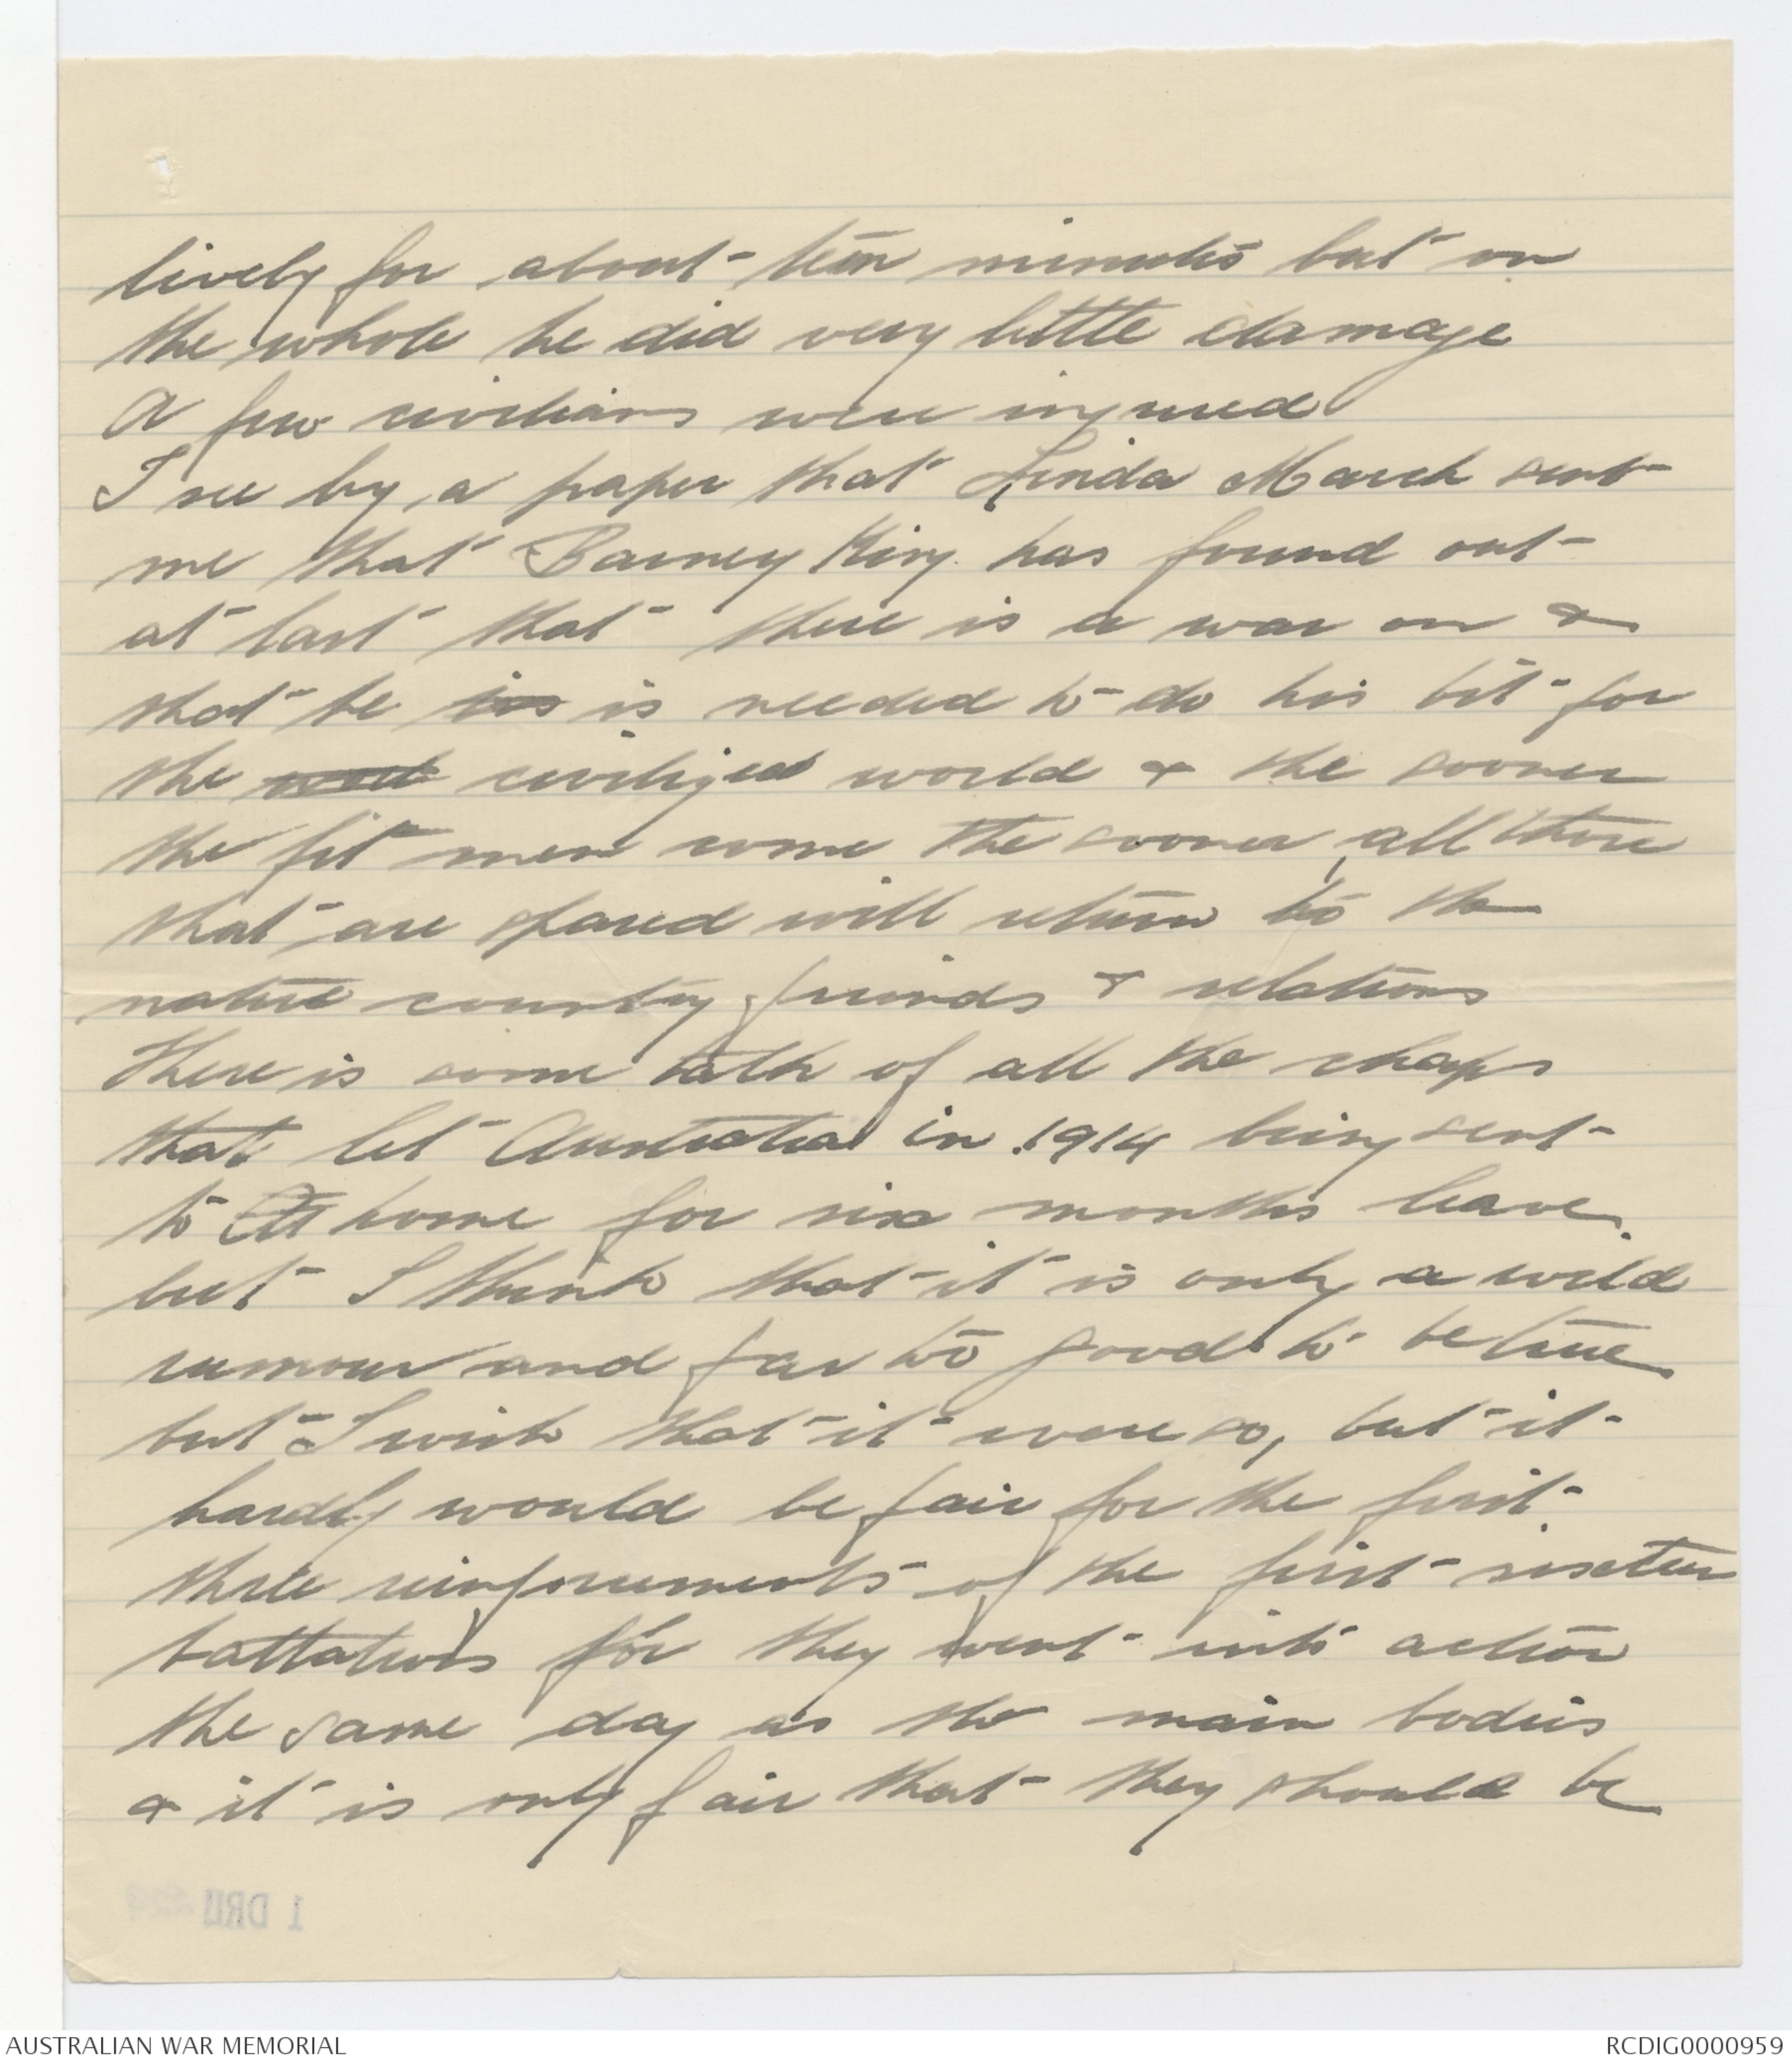 lively for about ten minutes but on
the whole he did very little damage
A few civilians were injured
I see by a paper that Linda March sent
me that Barney King has found out
at last that there is a war on &
that he is is needed to do his bit for
the civilized world & the sooner
the fit men come the sooner all those
that are spared will return to the
native country friends & relations
There is some talk of all the chaps
that let Australia in 1914 being sent
to home for six months leave
but I think that it is only a wild
rumour and far to good to be true
but I wish that it were so, but it
hardly would be fair for the first
three reinforcements of the first sixteen
battalions for they went into action
the same day as the main bodies
& it is only fair that they should be
1 DRL
AUSTRALIAN WAR MEMORIAL
RCDIG0000959